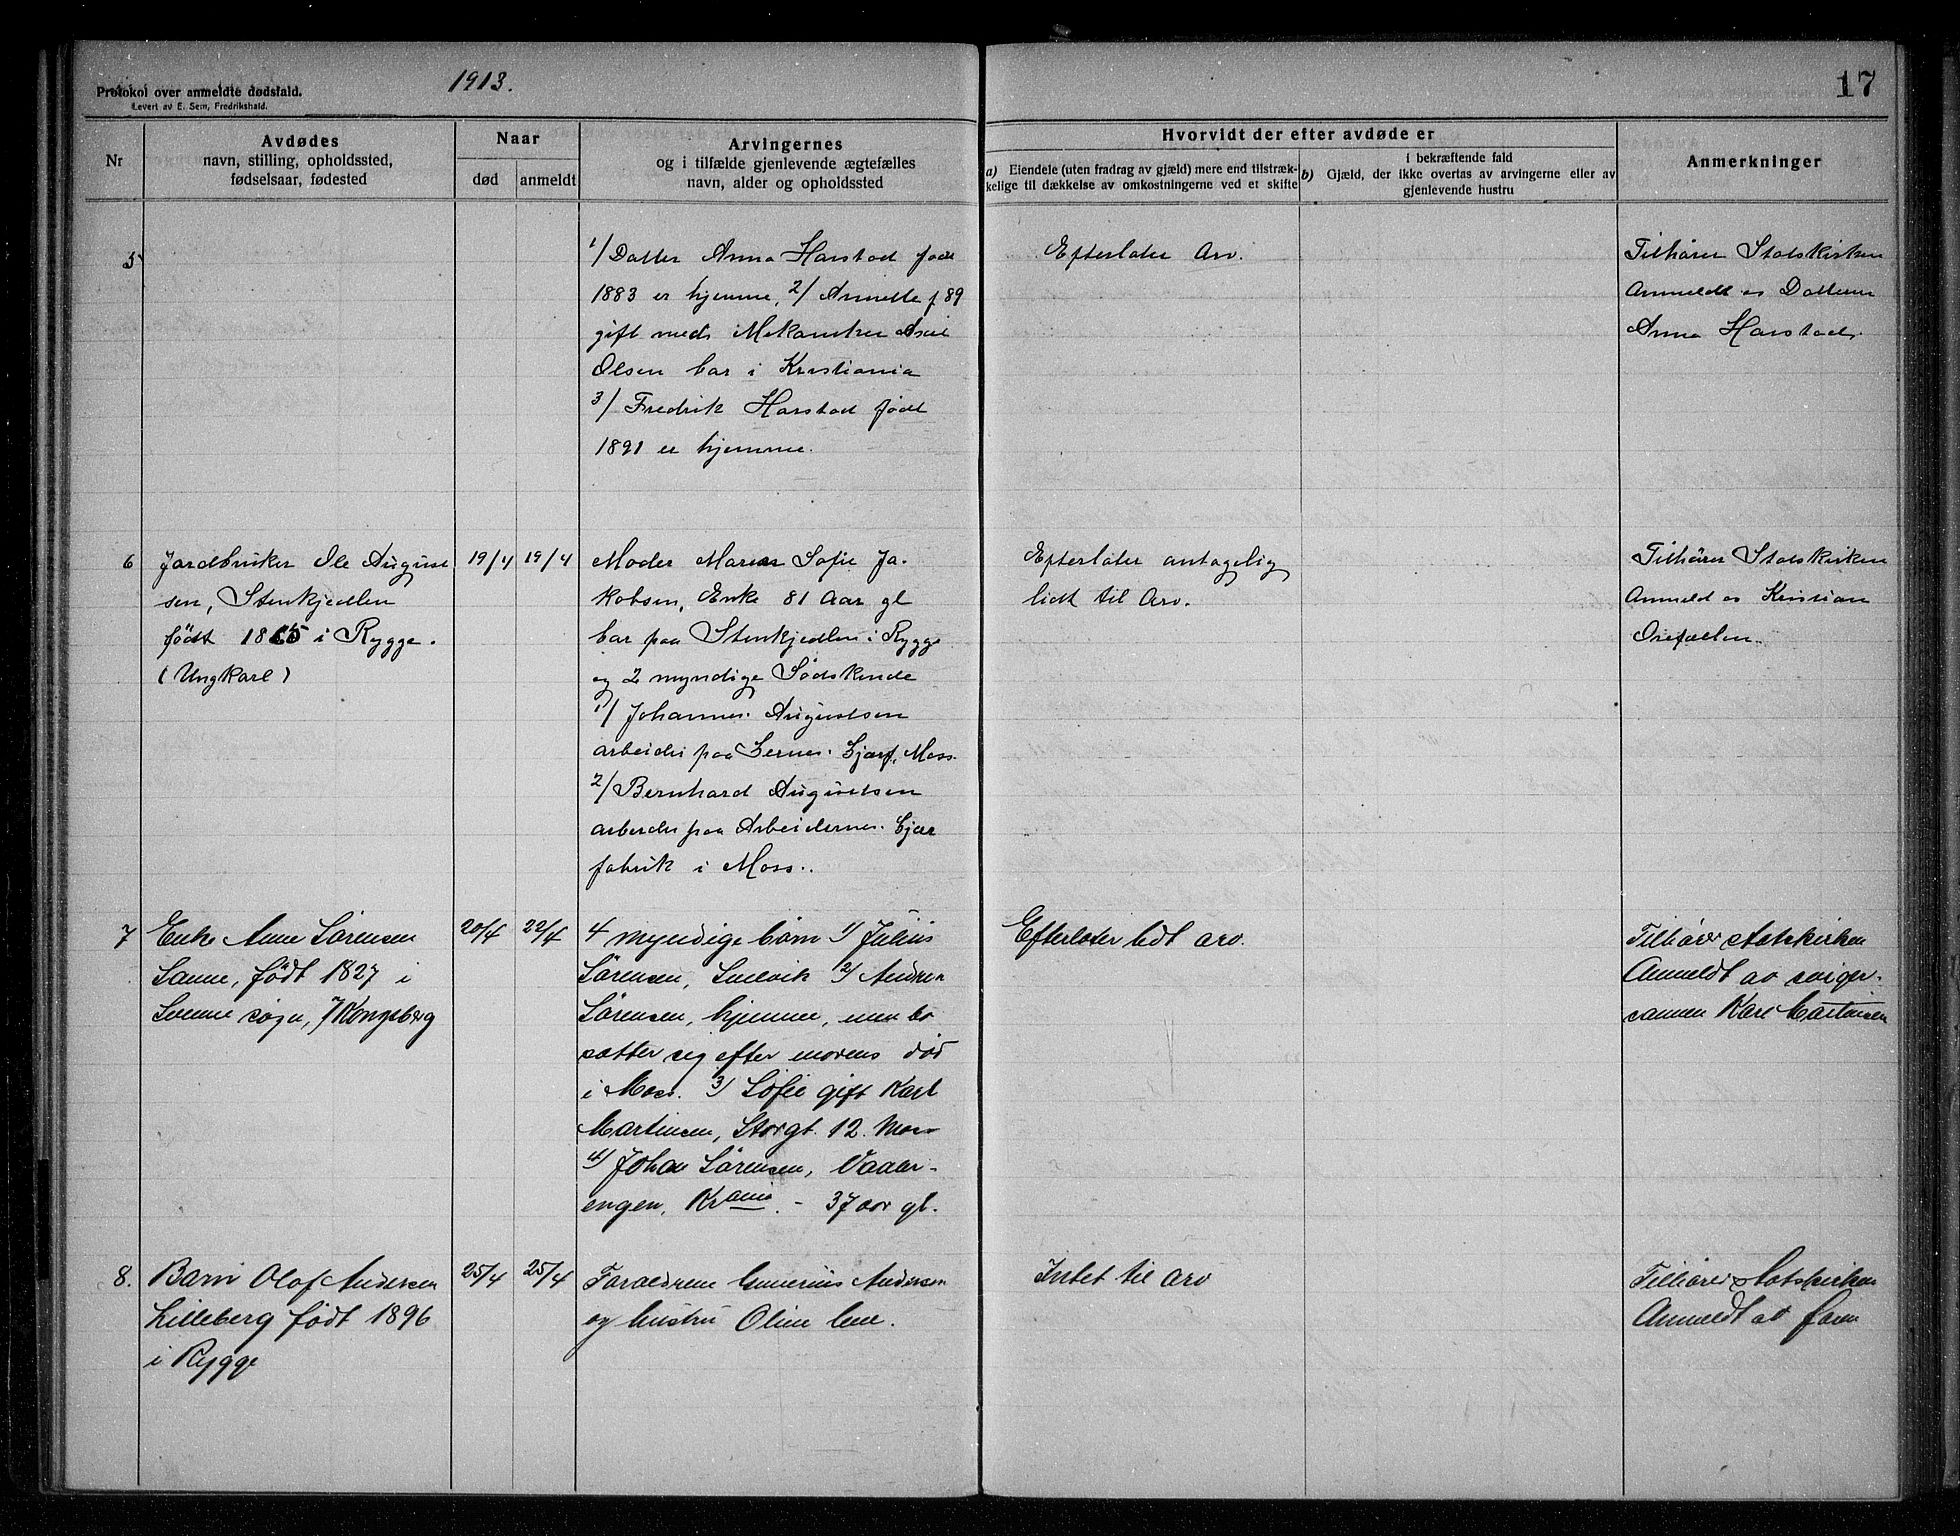 1913.
17
Protokol over anmeldte dødsfald.
Levert av E. Sem, Fredrikshald.
Nr
Avdødes
navn, stilling, opholdssted,
fødselsaar, fødested
Naar
død
anmeldt
Arvingernes
og i tilfælde gjenlevende ægtefælles
navn, alder og opholdssted
Hvorvidt der efter avdøde er
a) Eiendele (uten fradrag av gjæld) mere end tilstræk-
kelige til dækkelse av omkostningerne ved et skifte
i bekræftende fald
b) Gjæld, der ikke overtas av arvingerne eller av
gjenlevende hustru
Anmerkninger
5
1/ Datter Anna Harstad født
1883 er hjemme, 2/ Annette f 89
gift med Mekaniker
Olsen bor i Kristiania
3/ Fredrik Harstad født
1891 er hjemme.
Efterlater Arv.
Tilhører Statskirken
Anmeldt av Datteren
Anna Harstad.
6
Jordbruker Ole Augus-
sen, Stenkjedlen
født 1865 i Rygge.
(Ungkarl)
19/4
19/4
Moder Maren Sofie Ja-
kobsen, Enke 81 Aar gl
bor paa Stenkjedlen i Rygge
og 2 myndige Sødskende
1/ Johannes Augustsen
arbeider paa Gernes Gjærf. Moss.
2/ Bernhard Augustsen
arbeider paa Arbeidernes Gjær
fabrik i Moss.
Efterlater antagelig
lidt til Arv.
Tilhører Statskirken
Anmeldt av Kristian
7
Enke Anne Sørensen
Sanne, født 1827 i
sogn, /Kongsberg
20/4
22/4
4 myndige børn 1/ Julius
Sørensen, 2/ Andreas
Sørensen, hjemme, men bo
sætter sig efter morens død
i Moss. 3/ Sofie gift Karl
Martinsen, Storgt. 12. Moss
4/ Johan Sørensen, Vaaler-
engen, Krania. - 37 aar gl.
Efterlater lidt arv.
Tilhører statskirken
Anmeldt av sviger-
sønnen Karl Martinsen
8.
Barn Olaf Andersen
Lilleberg født 1896
i Rygge
25/4
25/4
Forældrene Gunerius Andersen
og hustru Oline
Intet til arv
Tilhører Statskirken
Anmeldt av faren